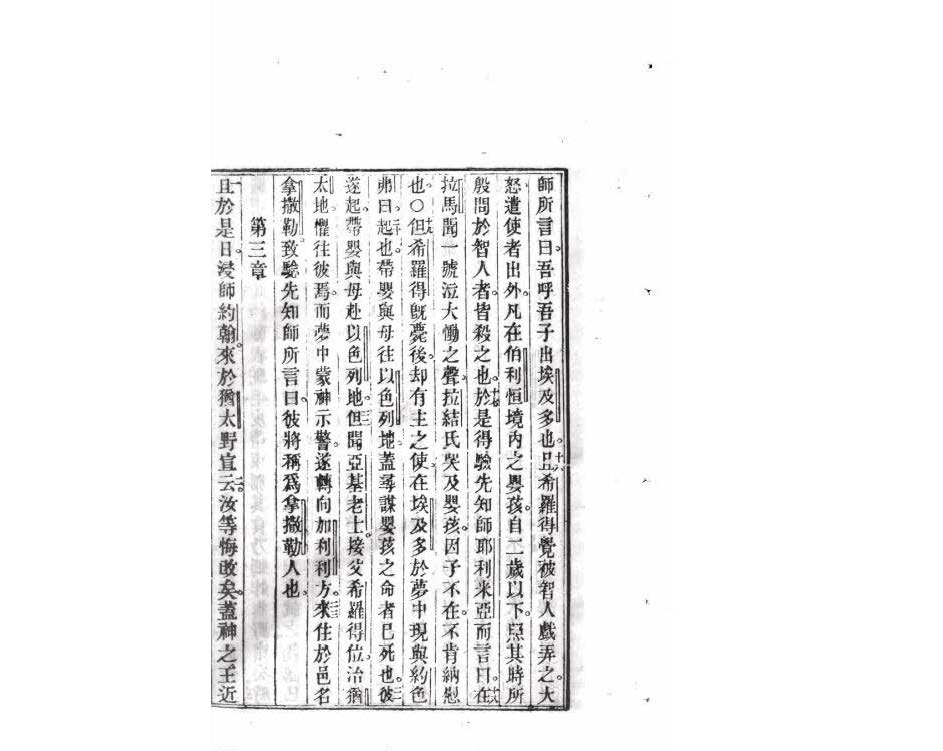 師所言曰吾呼吾子出埃及多也十六且希羅得覺被智人戲弄之大
怒遣使者出外凡在伯利恒境內之嬰孩自二歲以下照其時所
殷問於智人者皆殺之也十七於是得驗先知師耶利米亞而言曰十八在
拉馬聞一號泣大慟之聲拉結氏哭及嬰孩因子不在不肯納慰
也〇十九但希羅得旣薨後却有主之使在埃及多於夢中現與約色
弗曰二十起也帶嬰與母往以色列地蓋尋謀嬰孩之命者已死也彼
遂起帶嬰與母赴以色列地但聞亞基老士接父希羅得位治猶
太地懼往彼焉而夢中蒙神示警遂轉向加利利方來住於邑名
拿撒勒致驗先知師所言曰彼將稱爲拿撒勒人也
第三章
一且於是日浸師約翰來於猶太野宣二云汝等悔改矣蓋神之王近